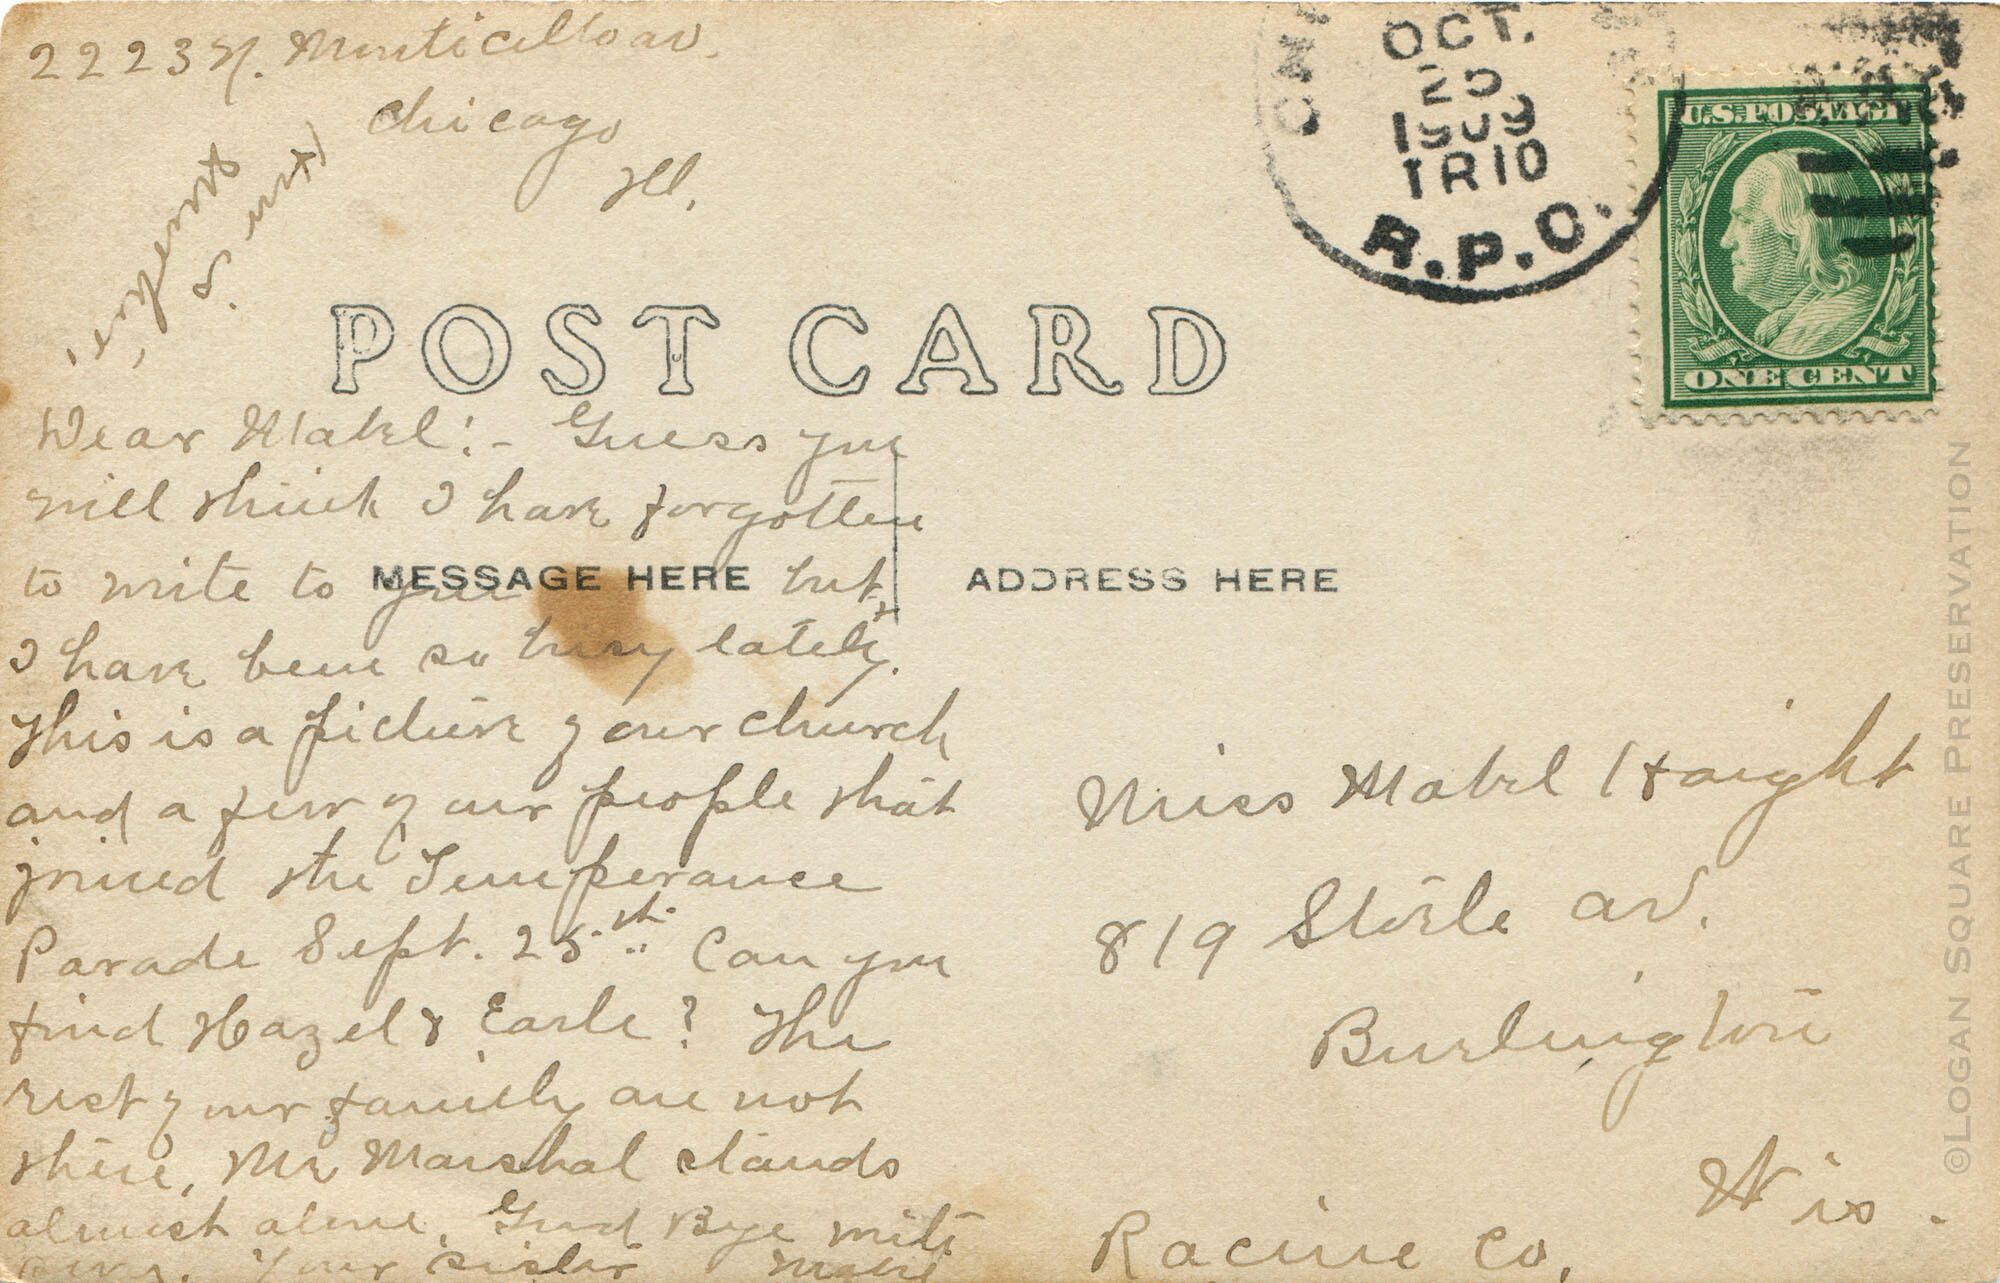 2223 N. Monticello av.
Chicago
Ill.
OCT.
20
1909
TR 10
R.P.O.
U.S. POSTAGE
ONE CENT
POST CARD
Dear Mabel:- Guess you
will think I have forgotten
to write to you but
MESSAGE HERE
ADDRESS HERE
I have been so busy lately.
This is a picture of our church
and a few of our people that
joined the Temperance
Parade Sept. 25th. Can you
find Hazel & Earle? The
rest of our family are not
there, Mr Marshal stands
almost alone. Good Bye write
Your sister
Miss Mabel Haight
819 Storle av.
Burlington
Wis.
Racine Co.
©LOGAN SQUARE PRESERVATION